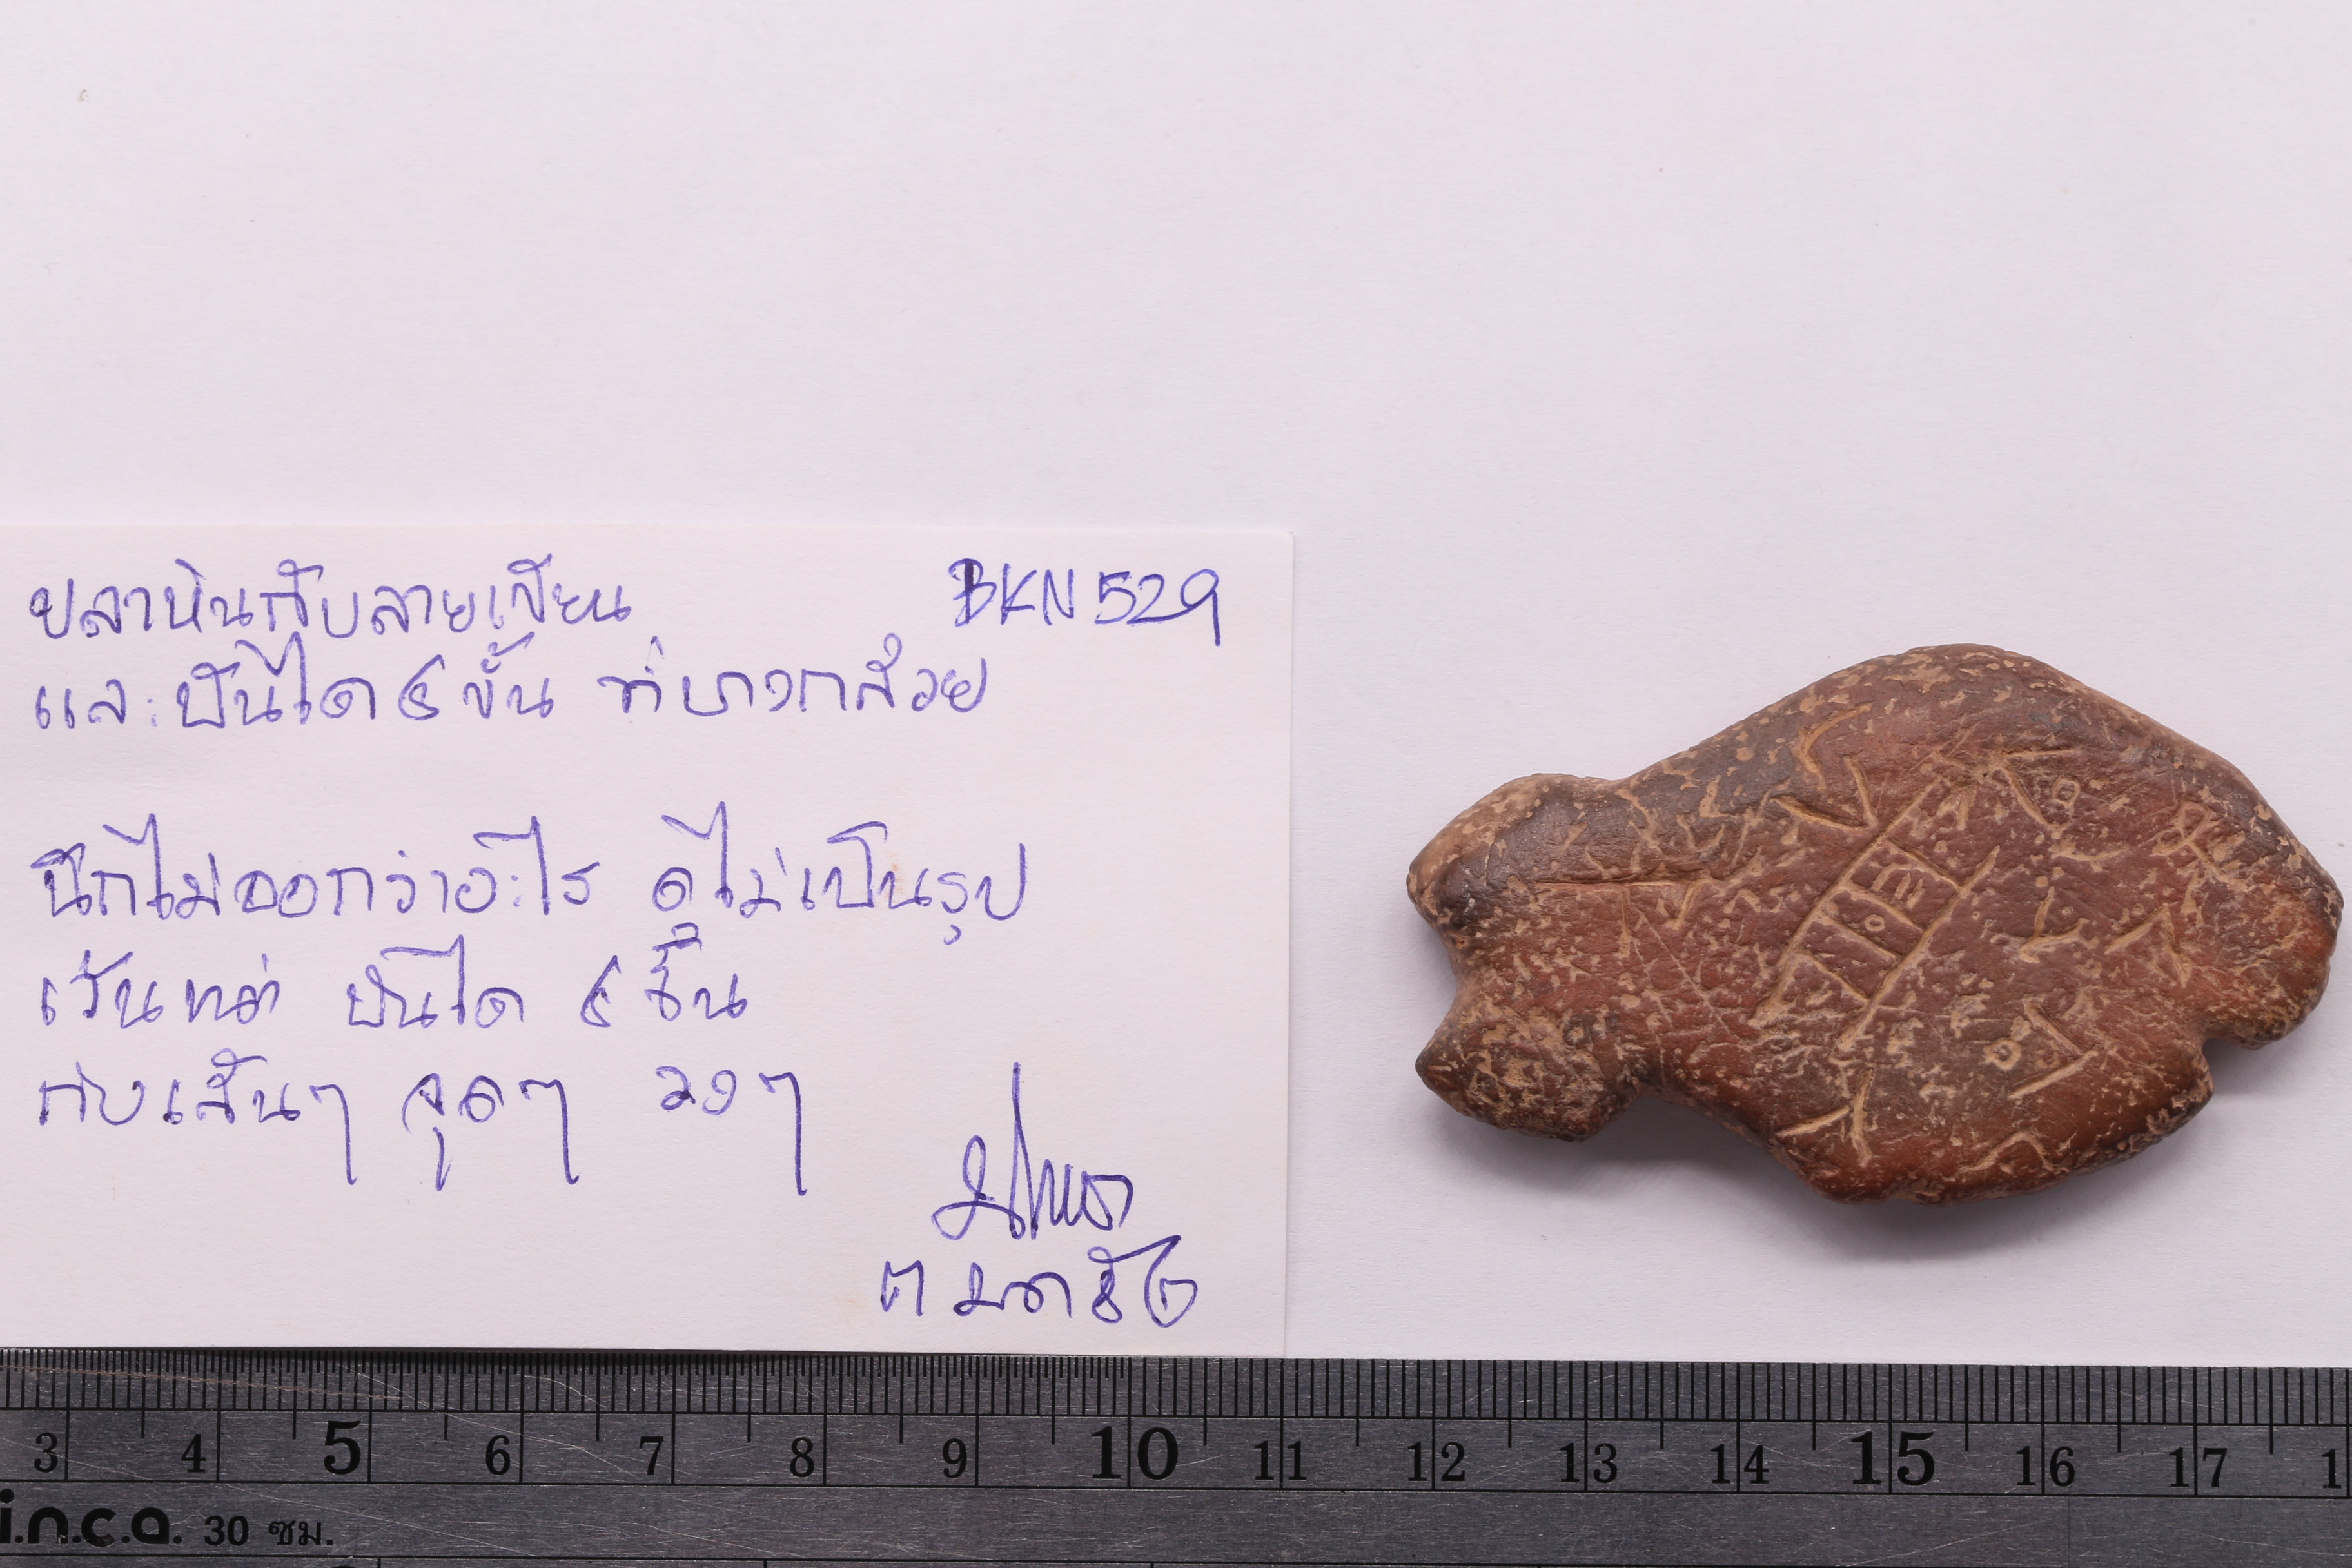 ปลาหินกับลายเขียน BKN529
และบันได ๕ ขั้น ที่บางกล้วย
นึกไม่ออกว่าอะไร ดูไม่เป็นรูป
เว้นแต่ บันได ๕ ขั้น
กับเส้นๆ จุดๆ วงๆ
3 4 5 6 7 8 9 10 11 12 13 14 15 16 17 1
i.n.c.a. 30 ซม.